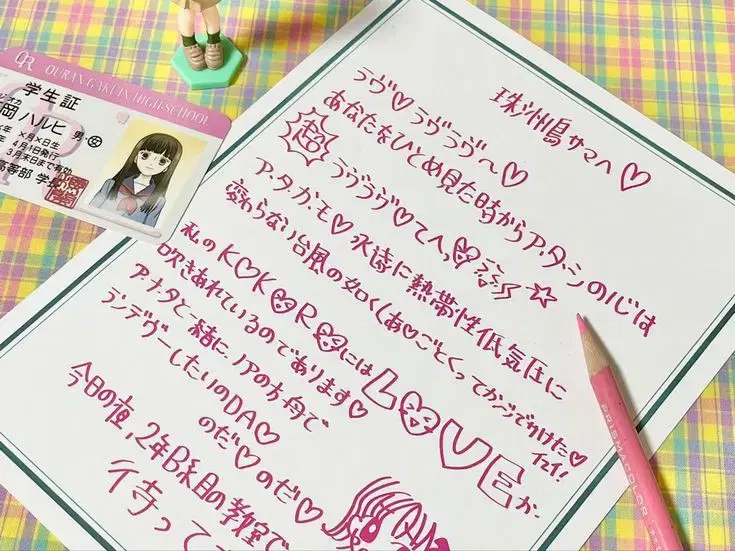 OURAN GAKUIN HIGH SCHOOL
学生証
岡 ハルヒ 男・女
×月×日生
4月1日発行
3月末日まで有効
高等部 学長
珠洲島サマへ♡
ラヴ♡ラヴラヴ〜♡
あなたをひとめ見た時からア・タ・シの心は
超 ラヴラヴ♡てへっ
ア・タ・カ・モ♡永遠に熱帯性低気圧に
変わらない台風の如く(あ♡ごとくってカンジでかけた♡
イエイ!
私のK♡K♡R♡にはLOVEが
吹きあれているのであります♡
ア・ナ・タと一緒に、ノアの方舟で
ランデヴーしたいのDA♡
のだ♡のだ♡
今日の夜、2年B組の教室で
待って
PRISMACOLOR